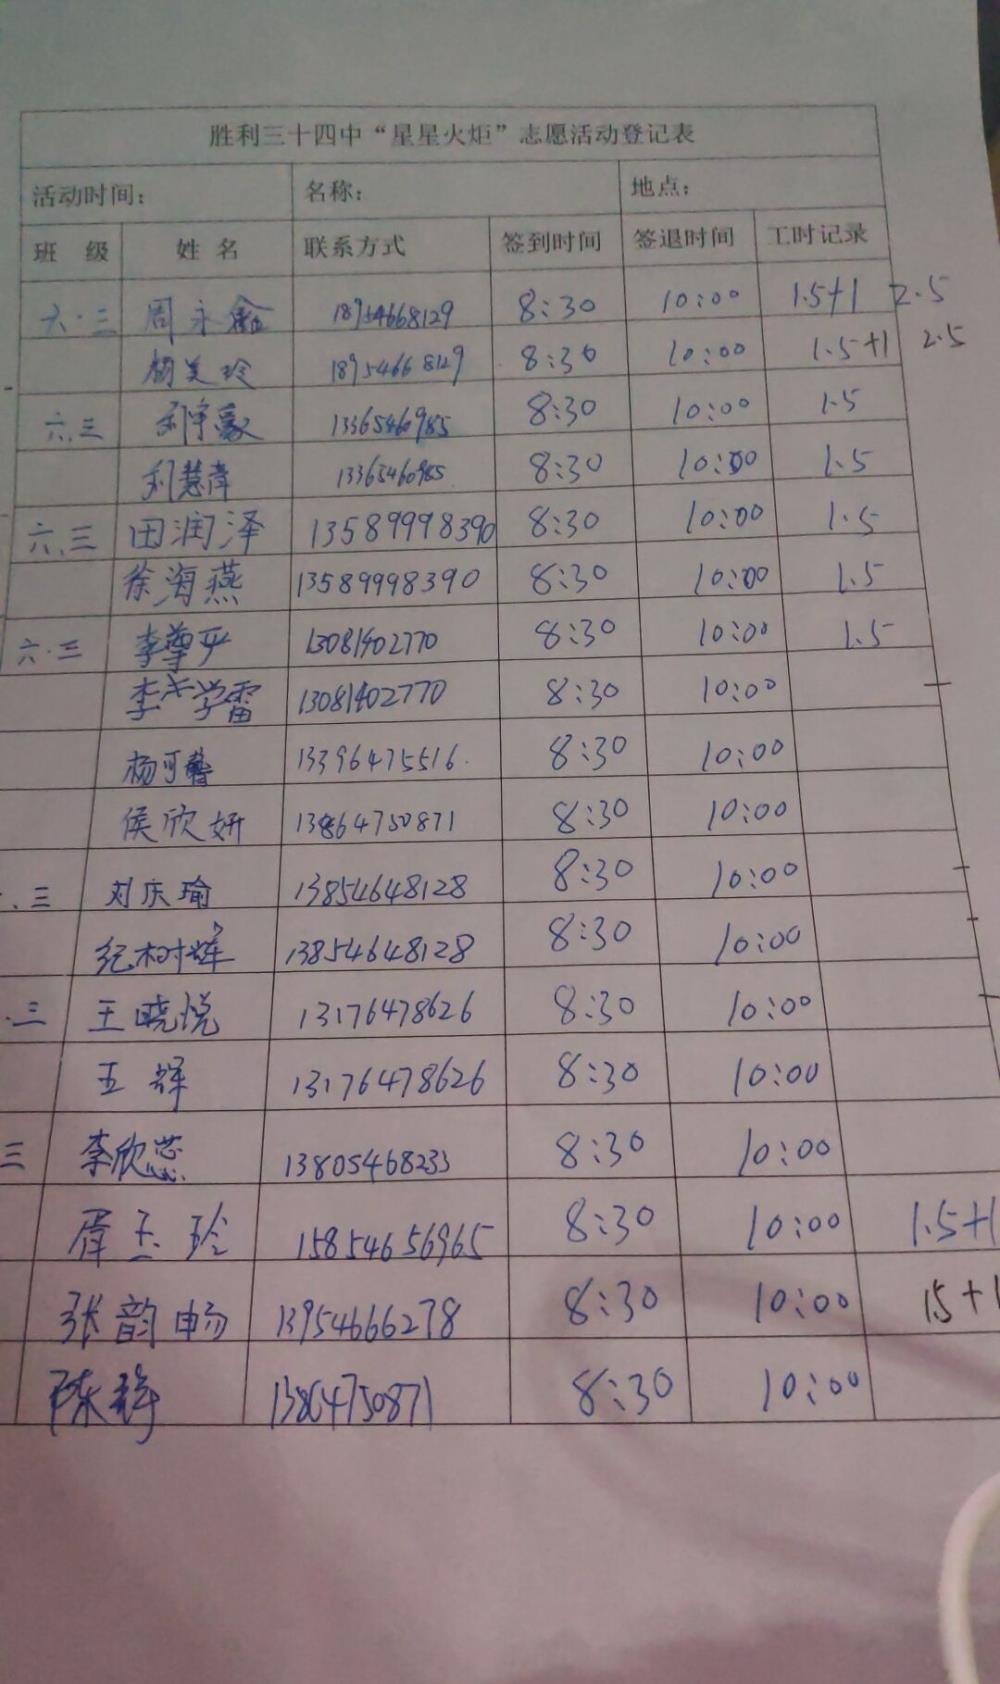 胜利三十四中“星星火炬”志愿活动登记表
活动时间： 名称： 地点：
班 级 姓 名 联系方式 签到时间 签退时间 工时记录
六.三 周永鑫 18954668129 8:30 10:00 1.5+1 2.5
美玲 18954668129 8:30 10:00 1.5+1 2.5
六.三 刘宇豪 13365460985 8:30 10:00 1.5
刘慧萍 13365460985 8:30 10:00 1.5
六.三 田润泽 13589998390 8:30 10:00 1.5
徐海燕 13589998390 8:30 10:00 1.5
六.三 李尊平 13081402770 8:30 10:00 1.5
李学雷 13081402770 8:30 10:00
杨可馨 13396475516 8:30 10:00
侯欣妍 13864750871 8:30 10:00
.三 刘庆瑜 13854648128 8:30 10:00
纪树辉 13854648128 8:30 10:00
.三 王晓悦 13176478626 8:30 10:00
王辉 13176478626 8:30 10:00
三 李欣蕊 13805468233 8:30 10:00
玉玲 15854656965 8:30 10:00 1.5+1
张韵畅 13954666278 8:30 10:00 1.5+1
陈辉 13864750871 8:30 10:00